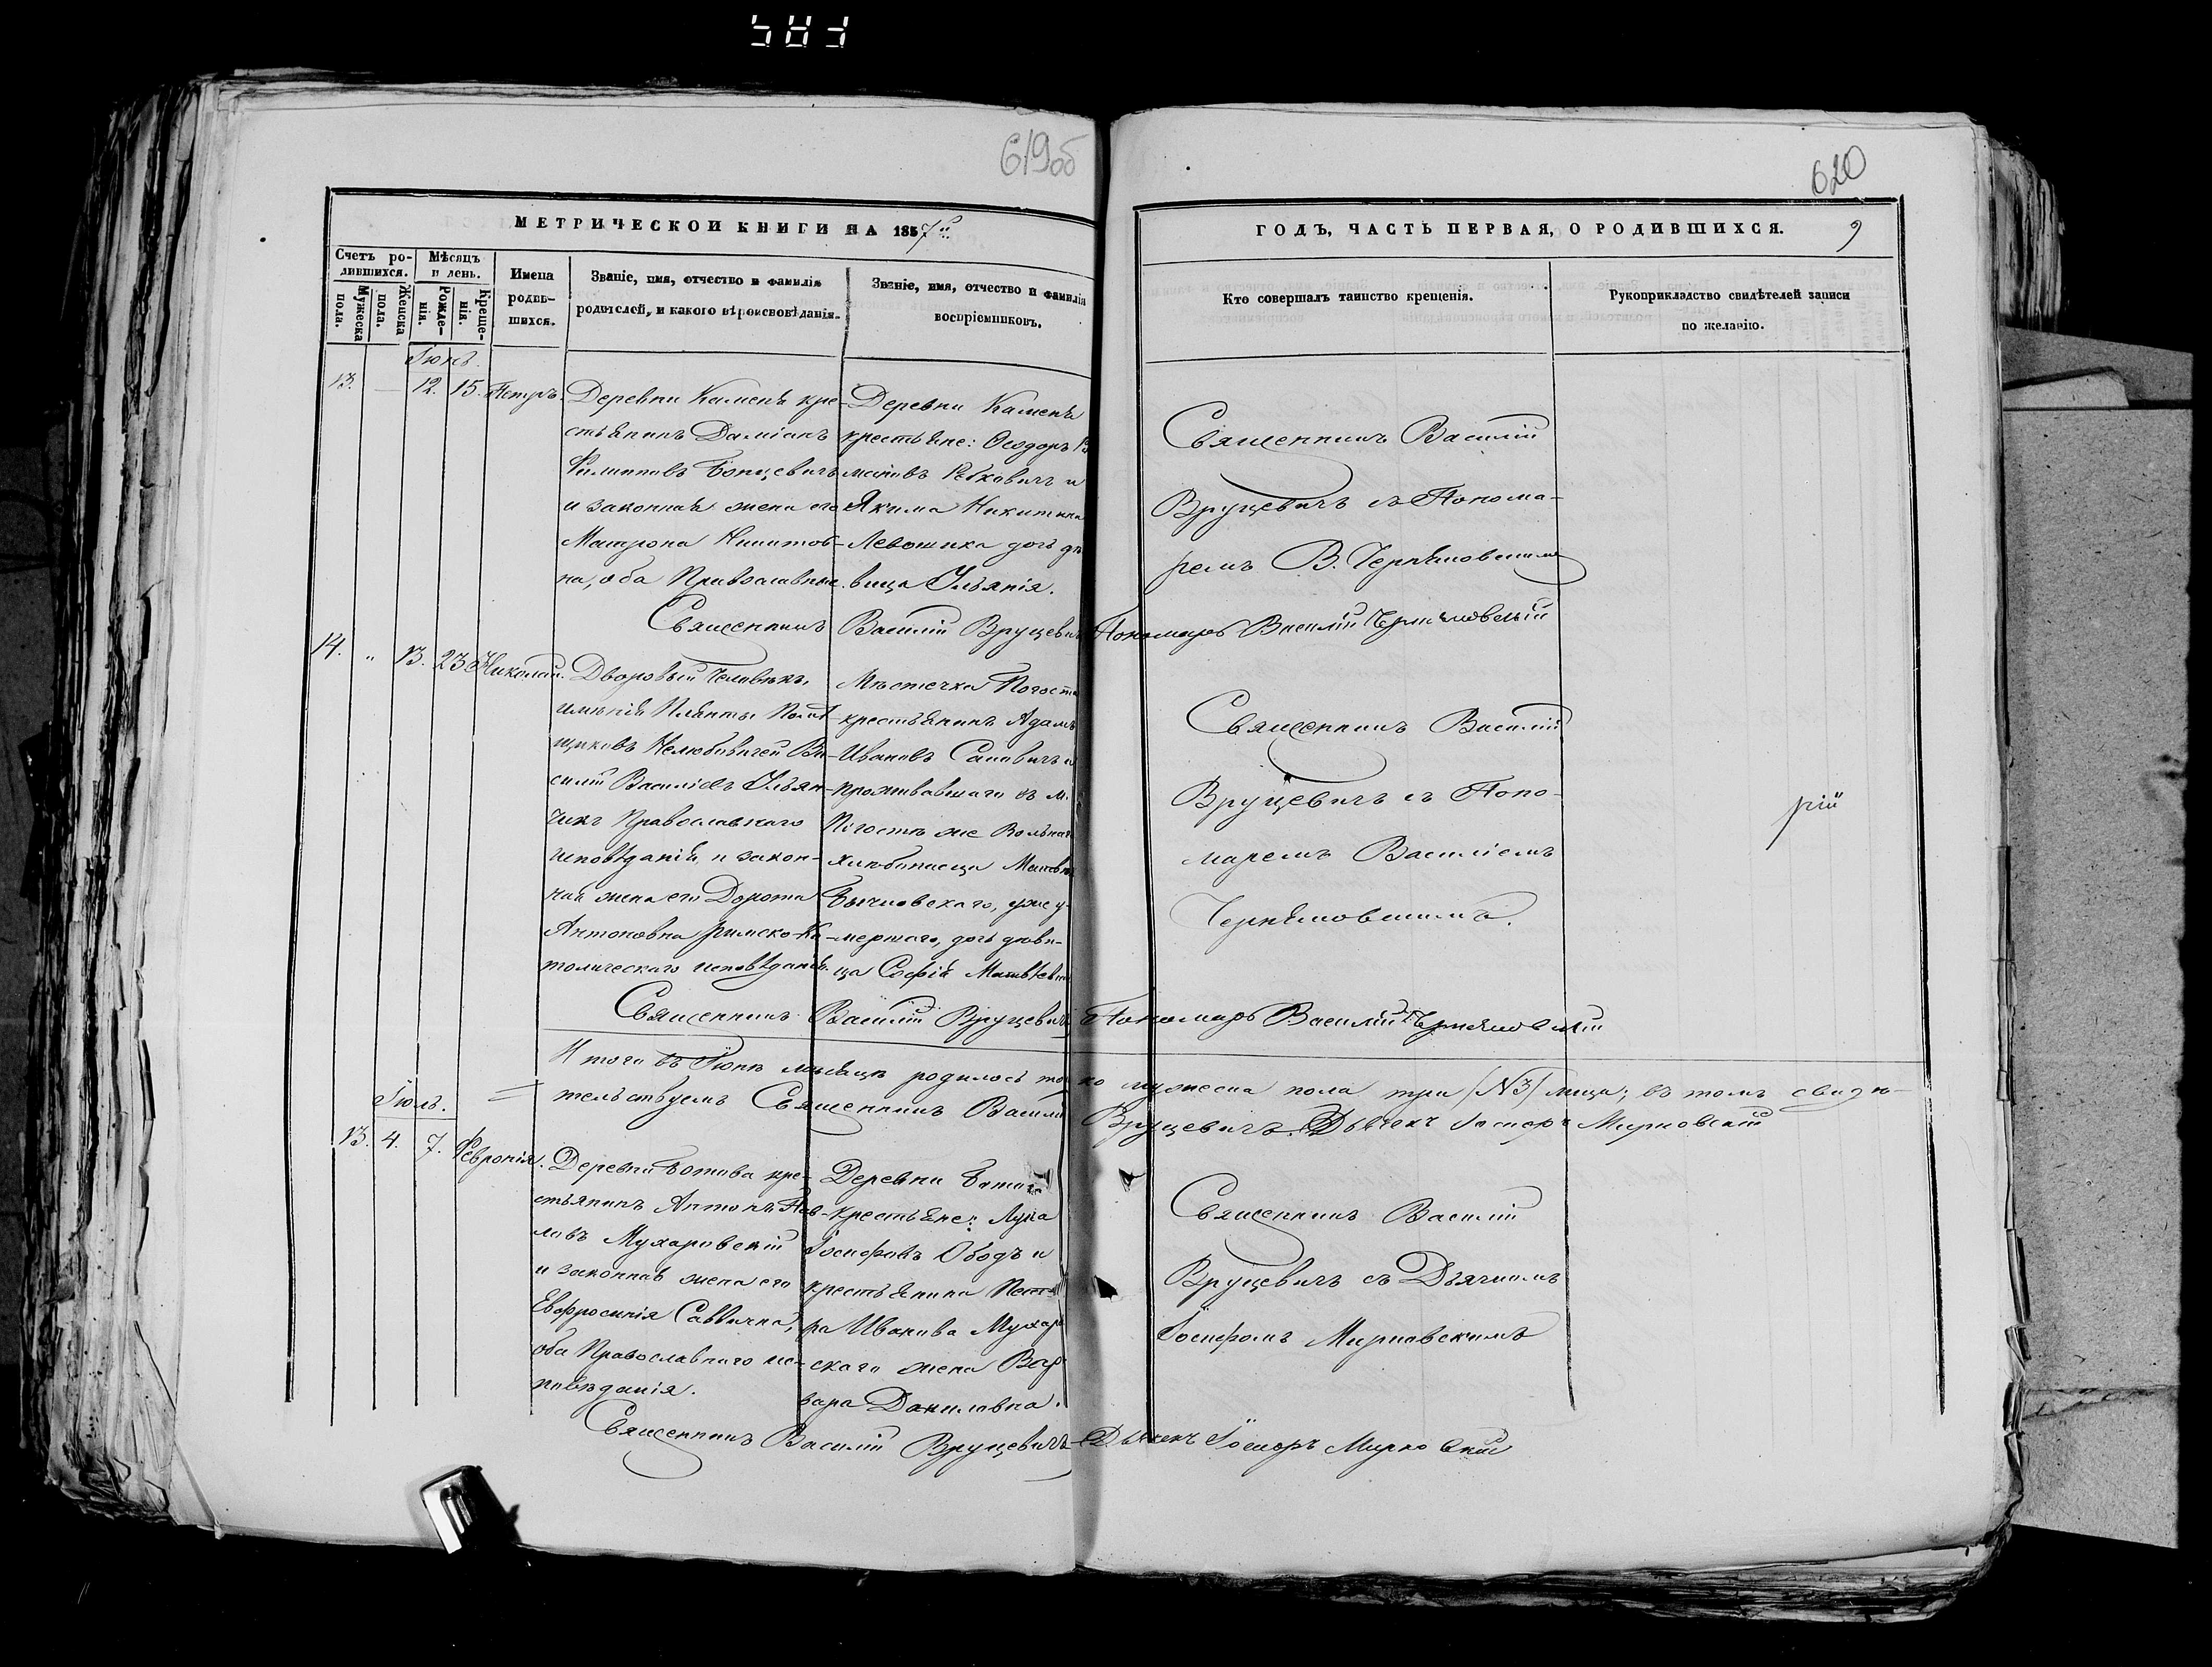 619об
620
МЕТРИЧЕСКОЙ КНИГИ НА 1857й
ГОДЪ, ЧАСТЬ ПЕРВАЯ, О РОДИВШИХСЯ.
9
Счетъ ро-
дившихся.
Мужеска пола.
Женска пола.
Мѣсяцъ
и день.
Рожде-
нія.
Креще-
нія.
Имена
родив-
шихся.
Званіе, имя, отчество и фамилія
родителей, и какого вѣроисповѣданія.
Званіе, имя, отчество и фамилія
воспріемниковъ.
Кто совершалъ таинство крещенія.
Рукоприкладство свидѣтелей записи
по желанію.
Іюнь.
13. — 12. 15. Петръ.
Деревни Камень кре-
стьянинъ Даміанъ
Филиповъ
и законная жена его
Матрона Никитов-
на, оба Православные.
Деревни Камень
крестьяне: Ѳеодоръ
и
Якима Никитина
дочь дѣ
вица Ульянія.
Священникъ Василій
Вруцевичъ съ Понома-
ремъ В.
Священникъ Василій Вруцевичъ
Пономарь Василій
14. " 13. 23. Николай.
Дворовый Человѣкъ,
имѣнія Помѣ-
щиковъ Ва-
силій Василіевъ
Православнаго
исповѣданія, и закон-
ная жена его Дорота
Антоновна Римско-Ка-
толическаго исповѣданія.
Мѣстечка Погоста
крестьянинъ Адамъ
Ивановъ и
проживавшаго въ М.
Погостѣ же
Матвѣя
уже у-
мершаго, дочь дѣви-
ца Софія Матвѣевна
Священникъ Василій
Вруцевичъ съ Поно-
маремъ Василіемъ
рій
Священникъ Василій Вруцевичъ
Пономарь Василій
Итого въ Іюнѣ мѣсяцѣ родилось только мужеска пола три /№3/ лица; въ томъ свидѣ-
тельствуемъ Священникъ Василій Вруцевичъ. Дьячекъ Іосифъ Мирковскій
Іюль.
13. 4. 7. Февронія.
Деревни Ботова кре-
стьянинъ Антонъ Пав-
ловъ Мухаровскій
и законная жена его
Евфросинія Саввична,
оба Православнаго ис-
повѣданія.
Деревни Ботова
крестьяне: Лука
Іосифовъ Ободъ и
крестьянина Пет-
ра Иванова
скаго жена Вар-
вара Даниловна.
Священникъ Василій
Вруцевичъ съ Дьячкомъ
Іосифомъ Мирковскимъ
Священникъ Василій Вруцевичъ
Дьячекъ Іосифъ Мирковскій